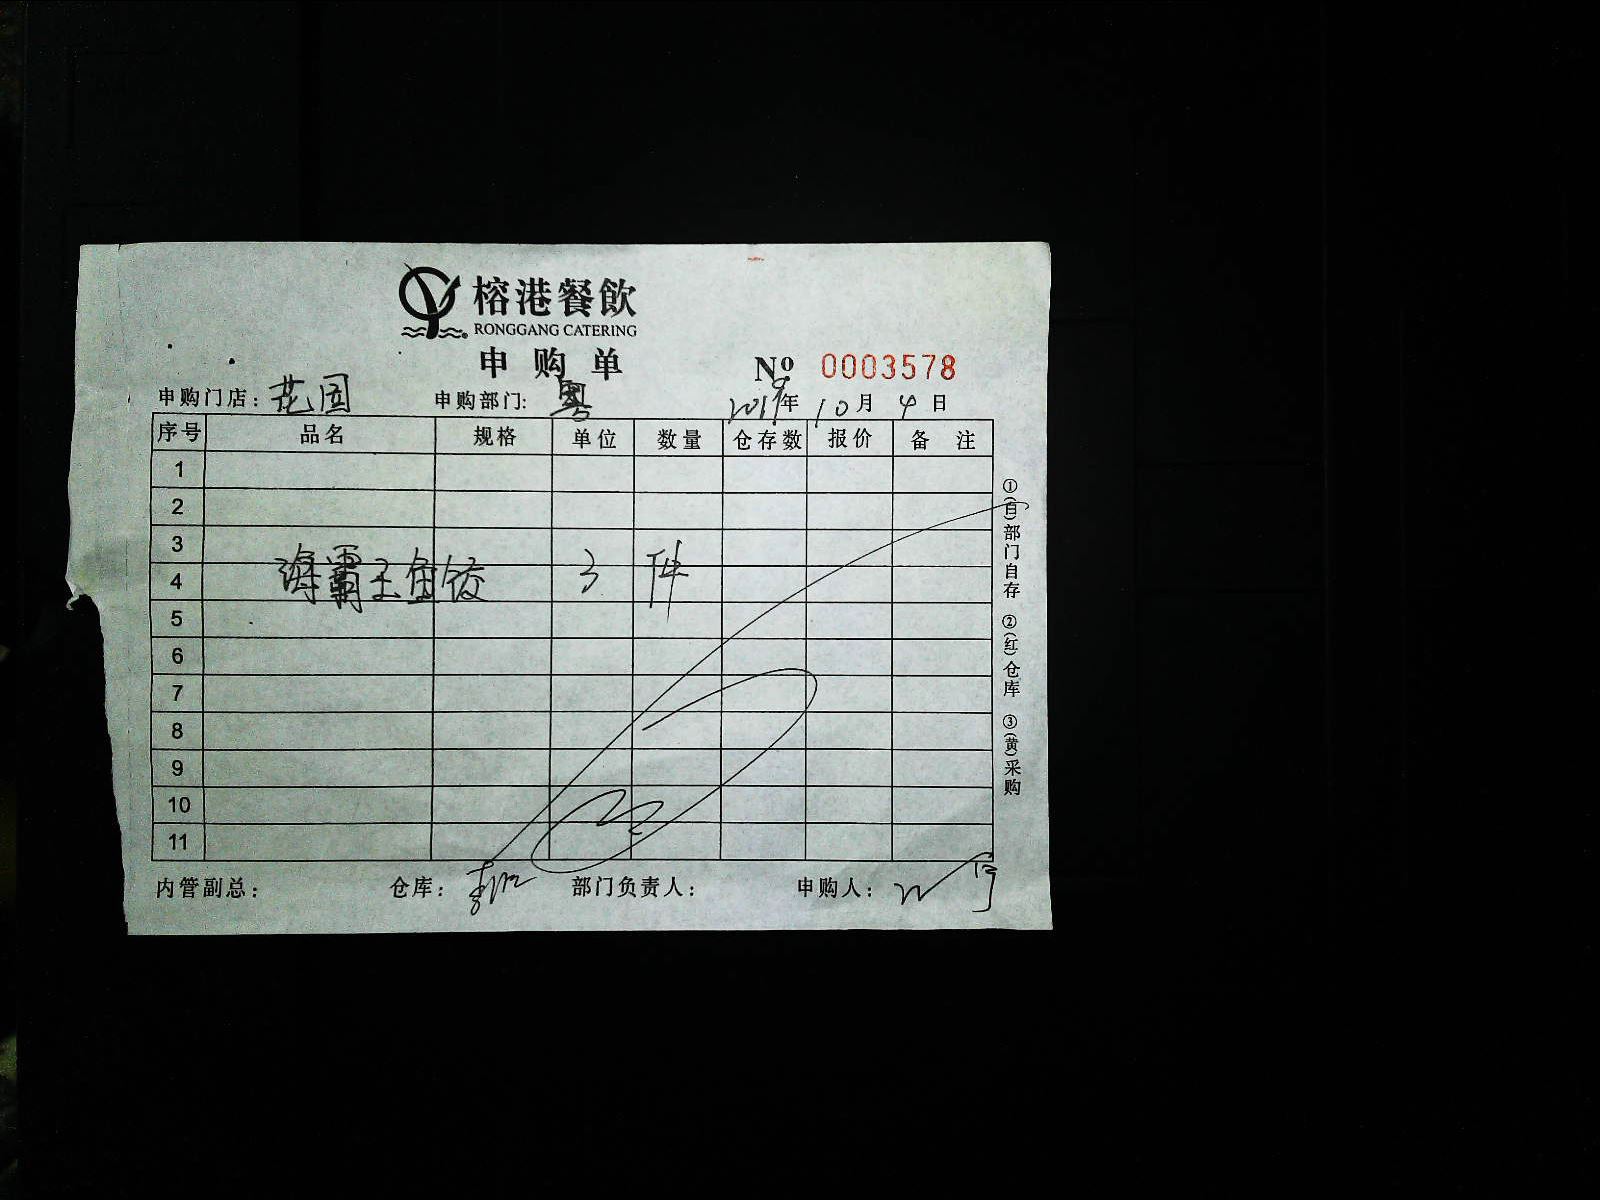 榕港餐飲
RONGGANG CATERING
申购单
Nº 0003578
申购门店：花园 申购部门：粤 2019年10月4日
序号 品名 规格 单位 数量 仓存数 报价 备注
1
2
3
4 海霸王鱼饺 3 件
5
6
7
8
9
10
11
内管副总： 仓库： 部门负责人： 申购人：
①(白)部门自存 ②(红)仓库 ③(黄)采购